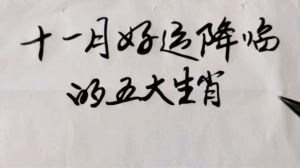 十一月好运降临
的五大生肖